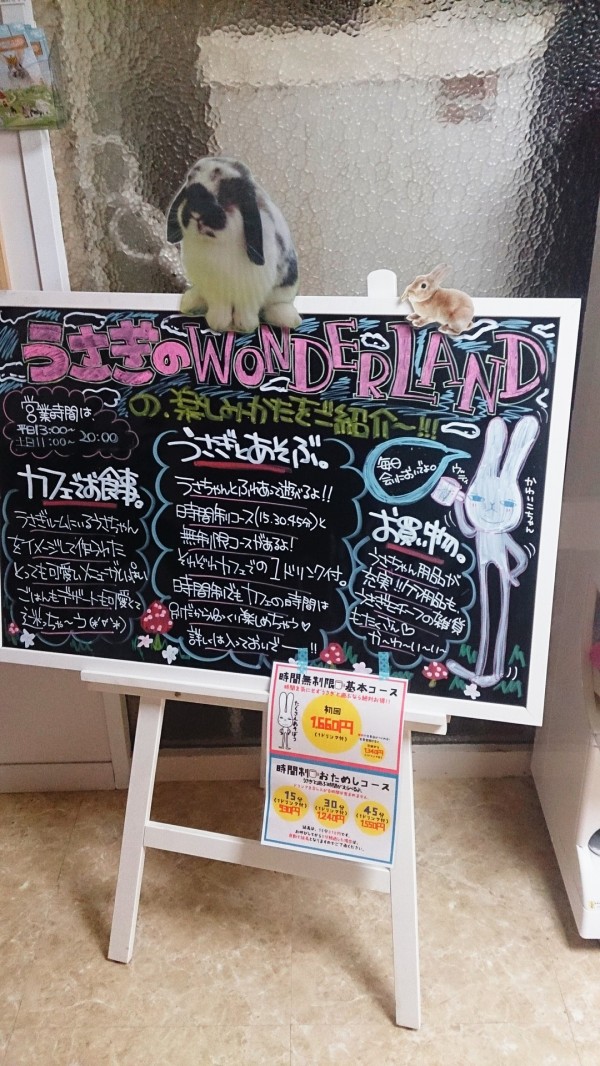 うさぎのWONDERLAND
の、楽しみかたをご紹介〜!!!
営業時間は
平日13:00〜
土日11:00〜 20:00
カフェでお食事。
うさぎルームにいるうさちゃん
をイメージして作られた
とっても可愛いメニューがいっぱい
ごはんもデザートも可愛くて
うさぎとあそぶ。
うさちゃんとふれあって遊べるよ!!
時間制コース(15.30.45分)と
無制限コースがあるよ!
それぞれカフェでの1ドリンク付。
時間制でもカフェの時間は
別だからゆっくり楽しめちゃう♡
詳しくは入っておいでー!!
毎日
会においでよの
お買い物。
うさちゃん用品が
充実!!ケア用品も、
うさぎモチーフの雑貨
もたくさん♡
か〜わ〜い〜い〜
時間無制限 基本コース
時間を気にせずうさぎと遊ぶなら絶対お得!!
たくさんあそぼう
初回
1.660円
(1ドリンク付)
1.340円
時間制 おためしコース
15分
(1ドリンク付)
930円
30分
(1ドリンク付)
1.240円
45分
(1ドリンク付)
1.550円